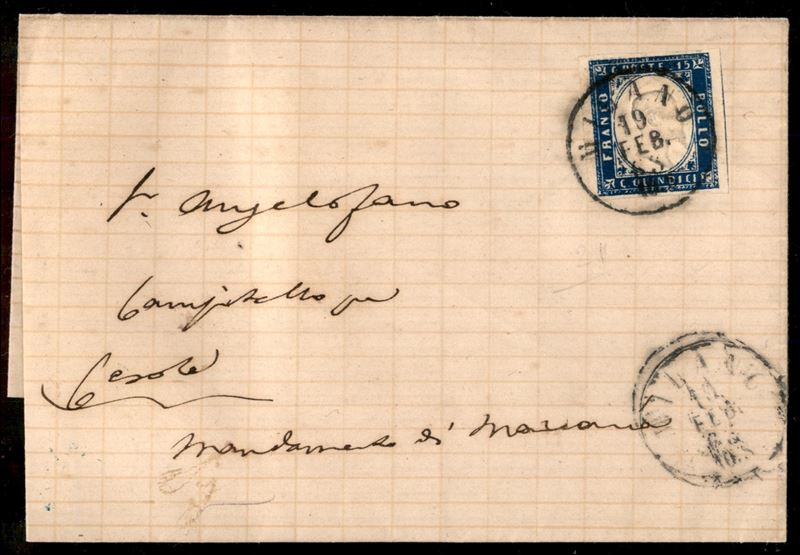 C. POSTE 15
FRANCO
BOLLO
C. QUINDICI
MILANO
19
FEB.
63
Angelo Fano
Campitello per
Cesole
Mandamento di Marcaria
MILANO
19
FEB.
63
10 S